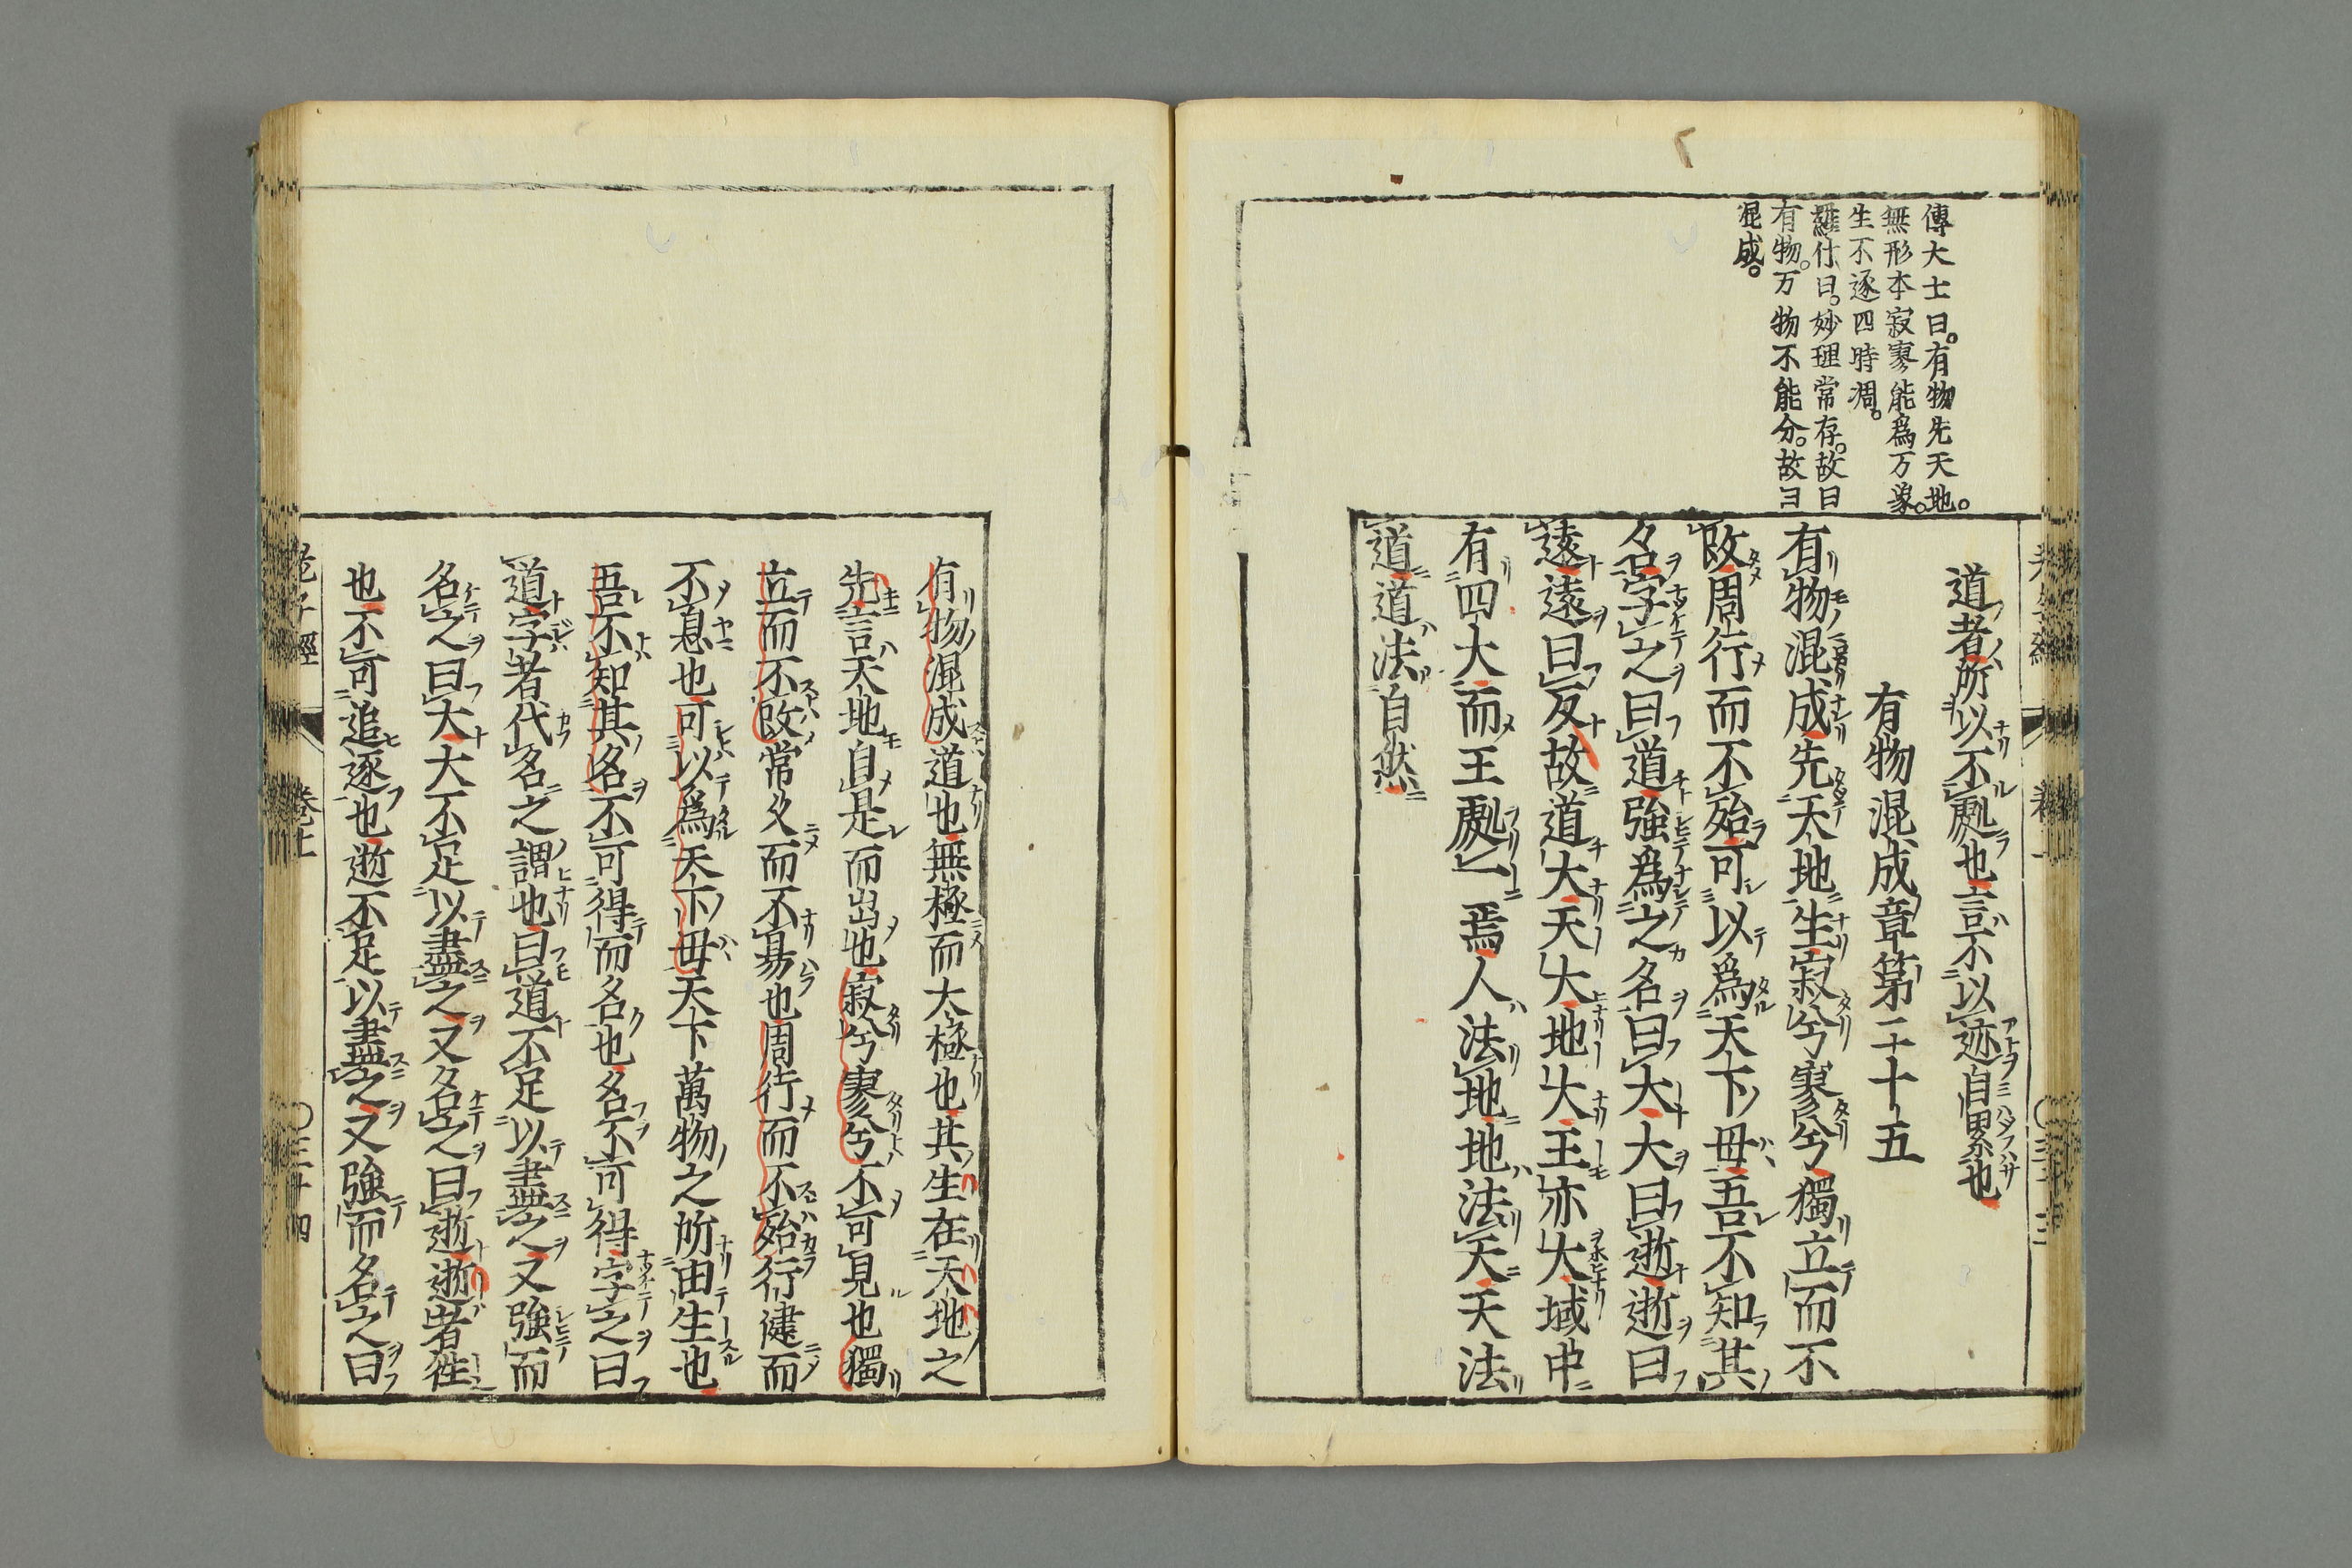 傅大士曰。有物先天地。
無形本寂寥能爲万象。
生不逐四時凋。
羅什曰。妙理常存。故曰
有物。万物不能分。故曰
混成。
道者所以不處也言不以迹自累也
有物混成章第二十五
有物混成先天地生寂兮寥兮獨立而不
改周行而不殆可以爲天下母吾不知其
名字之曰道強爲之名曰大大曰逝逝曰
遠遠曰反故道大天大地大王亦大域中
有四大而王處一焉人法地地法天天法
道道法自然
有物混成道也無極而大極也其生在天地之
先言天地自是而出也寂兮寥兮不可見也獨
立而不改常久而不易也周行而不殆行健而
不息也可以爲天下母天下萬物之所由生也
吾不知其名不可得而名也名不可得字之曰
道字者代名之謂也曰道不足以盡之又強而
名之曰大大不足以盡之又名之曰逝逝者徃
也不可追逐也逝不足以盡之又強而名之曰
老子經 卷上 〇三十四